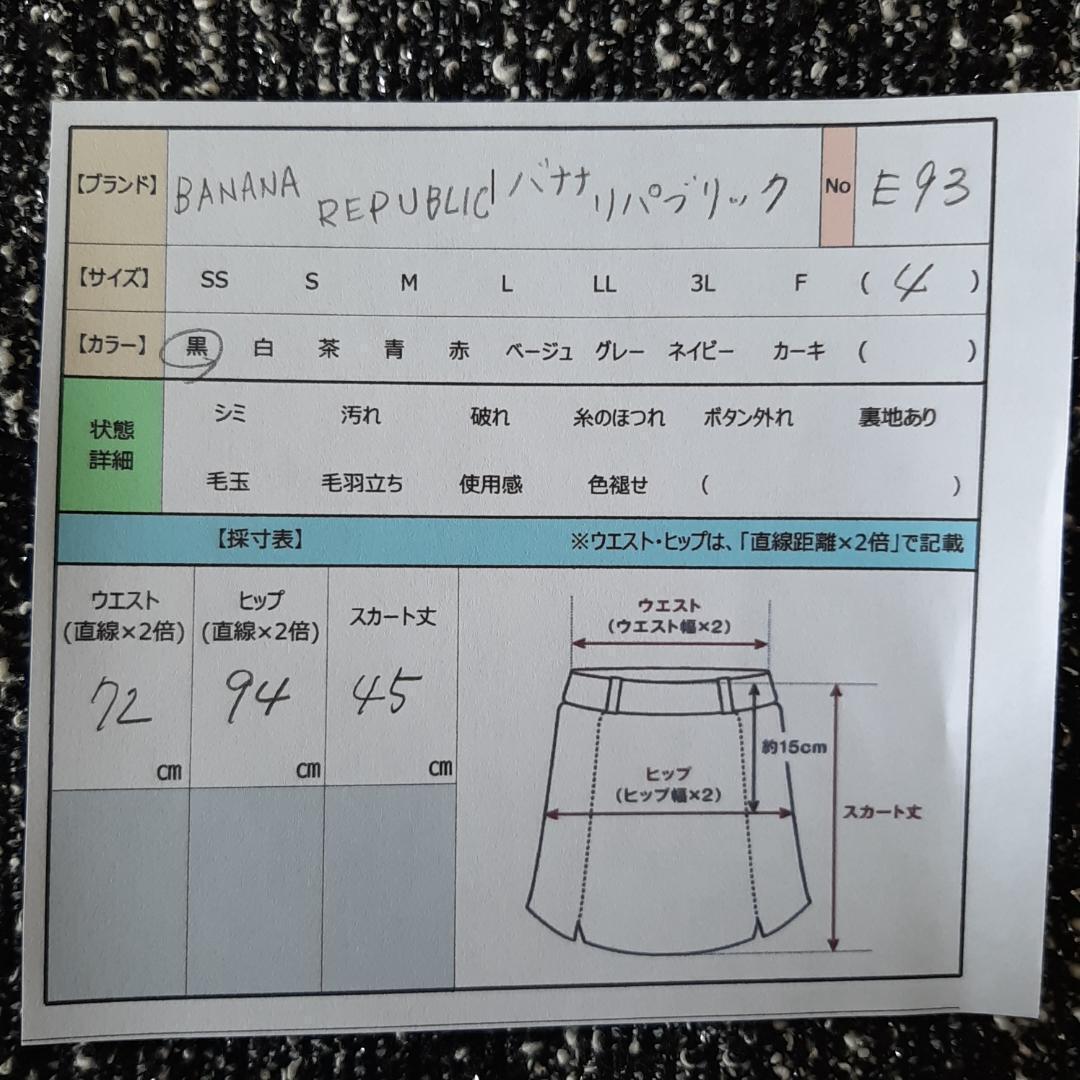 【ブランド】 BANANA REPUBLIC バナナ リパブリック No E93
【サイズ】 SS S M L LL 3L F ( 4 )
【カラー】 黒 白 茶 青 赤 ベージュ グレー ネイビー カーキ ( )
状態
詳細
シミ 汚れ 破れ 糸のほつれ ボタン外れ 裏地あり
毛玉 毛羽立ち 使用感 色褪せ ( )
【採寸表】 ※ウエスト・ヒップは、「直線距離×2倍」で記載
ウエスト
(直線×2倍)
72
cm
ヒップ
(直線×2倍)
94
cm
スカート丈
45
cm
ウエスト
(ウエスト幅×2)
約15cm
ヒップ
(ヒップ幅×2)
スカート丈